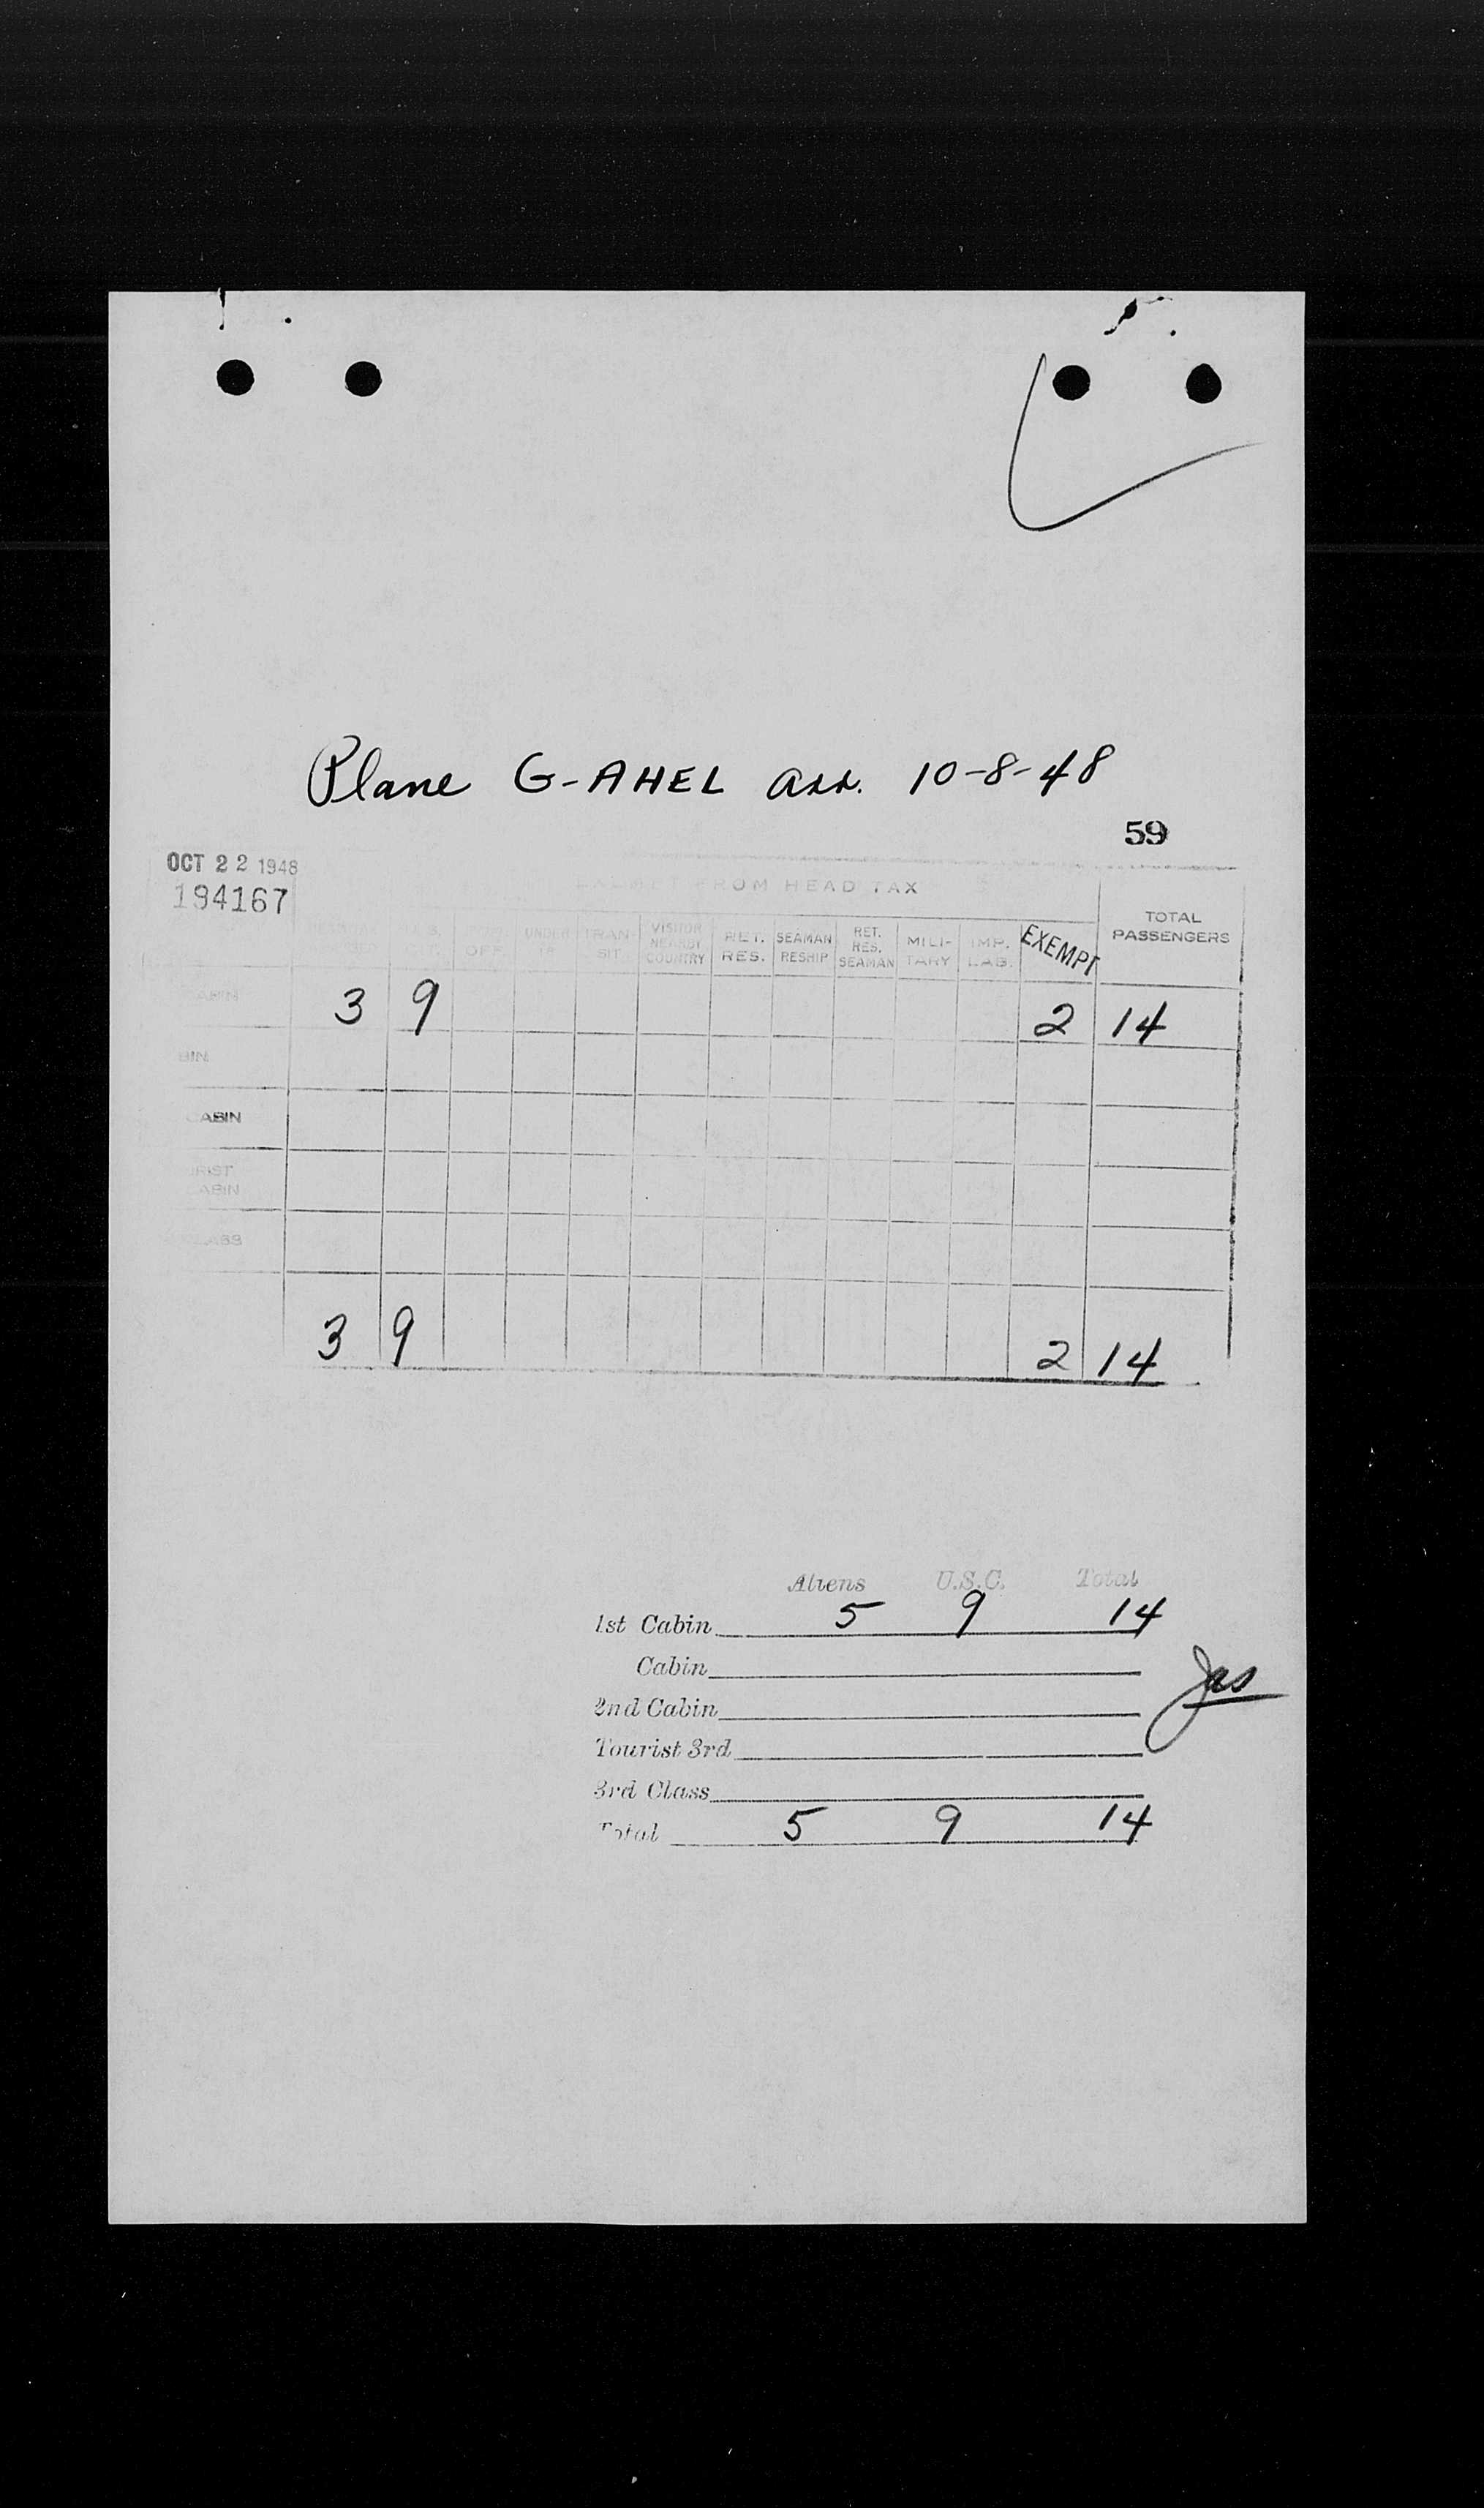 Plane G-AHEL arr. 10-8-48
59
OCT 22 1948
194167
EXEMPT FROM HEAD TAX
TOTAL PASSENGERS
U.S. OFF. UNDER 16 TRAN-SIT VISITOR NEARBY COUNTRY RET. RES. SEAMAN RESHIP RET. RES. SEAMAN MILI-TARY IMP. LAB. EXEMPT
CABIN 3 9 2 14
BIN
CABIN
RIST CABIN
CLASS
3 9 2 14
Aliens U.S.C. Total
1st Cabin 5 9 14
Cabin
2nd Cabin
Tourist 3rd
3rd Class
Total 5 9 14